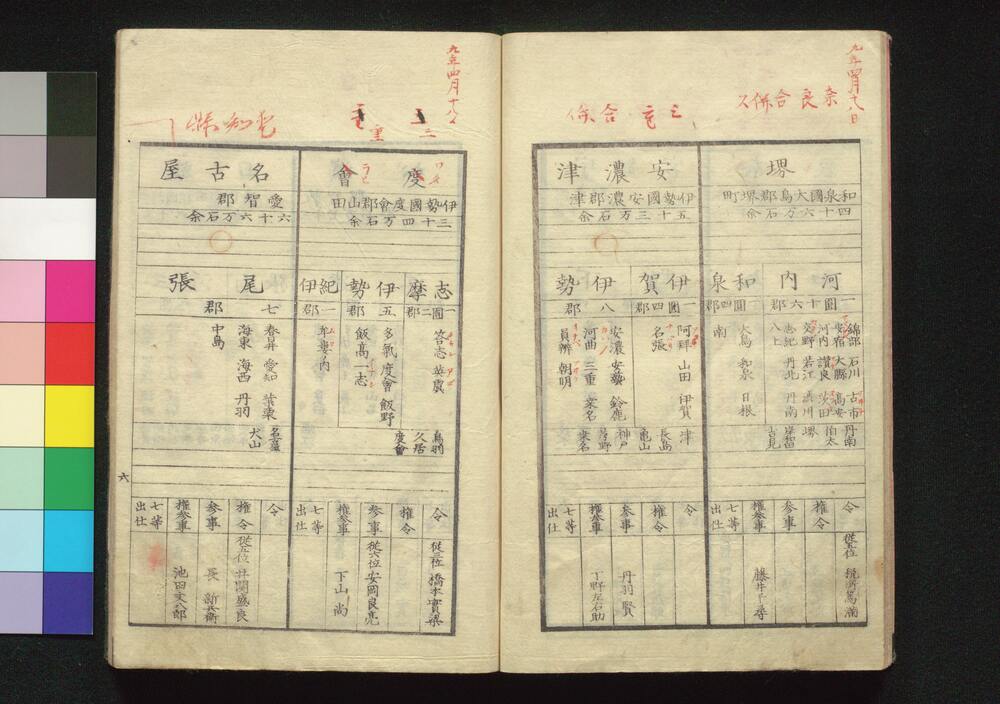 九年四月十八日
奈良合併ス
堺
和泉國大島郡堺町
四十六万石余
河内
一圓十六郡
錦部 石川 古市
安宿 大縣 高安
河内 讃良 茨田
交野 若江 渋川
志紀 丹北 丹南
八上
丹南
伯太
堺
岸和田
吉見
和泉
一圓四郡
大鳥 和泉 日根
南
令
從五位
権令
参事
権参事
藤井千尋
七等出仕
三重合併
安濃津
伊勢國安濃郡津
五十三万石余
伊賀
一圓四郡
阿拜 山田 伊賀
名張
伊勢
八郡
安濃 安藝 鈴鹿
河曲 三重 桑名
員辨 朝明
津
長島
亀山
神戸
菰野
桑名
令
権令
参事
丹羽賢
権参事
下野左右助
七等出仕
九年四月十八日
三重
度會
ワタ
ラヒ
伊勢國度會郡山田
三十四万石余
志摩
一圓二郡
答志 英虞
伊勢
五郡
多氣 度會 飯野
飯高 一志
紀伊
一郡
牟婁ノ内
鳥羽
久居
度會
令
從三位 橋本實梁
権令
参事
從六位 安岡良亮
権参事
下山尚
七等出仕
愛知縣
名古屋
愛智郡
六十六万石余
尾張
七郡
春日井 愛知 葉栗
海東 海西 丹羽
中島
名古屋
犬山
令
権令
從五位 井関盛良
参事
長
権参事
池田文八郎
七等出仕
六